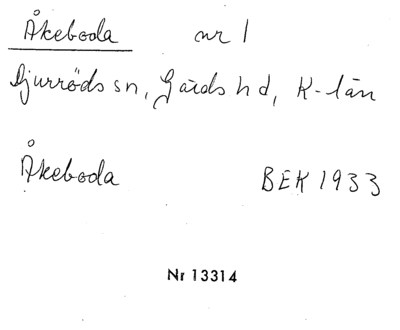 Åkeboda nr 1
Djurröds sn, Gärds hd, K-län
Åkeboda BEK 1933
Nr 13314